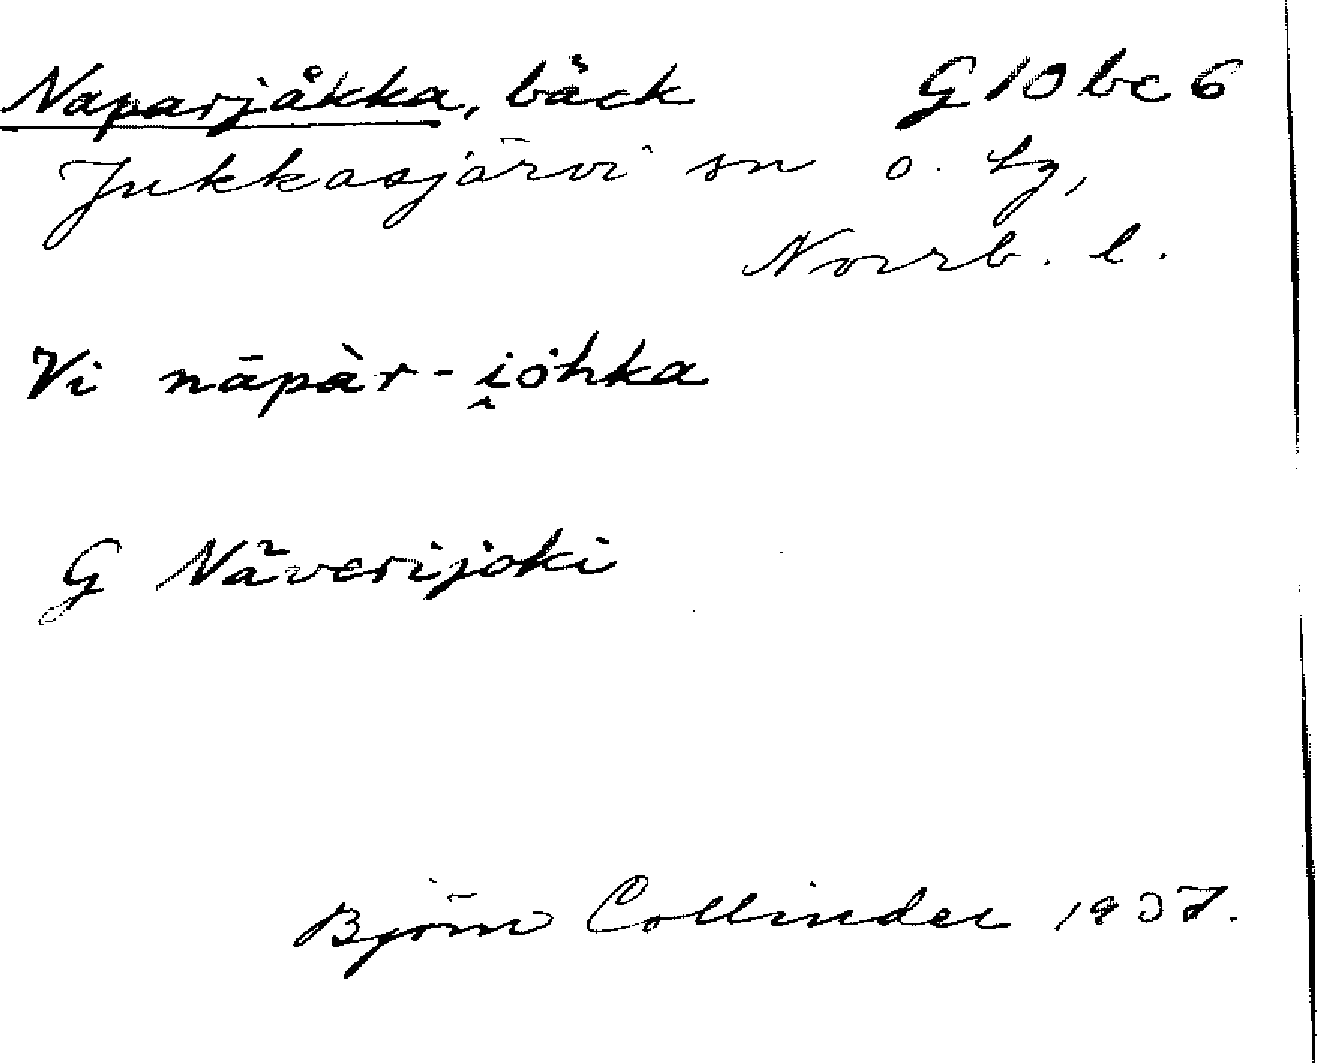 Naparjåkka, bäck G 10 bc 6
Jukkasjärvi sn o. tg,
Norrb. l.
Vi nāpàr-i̯ȯhka
G Näverijoki
Björn Collinder 1937.